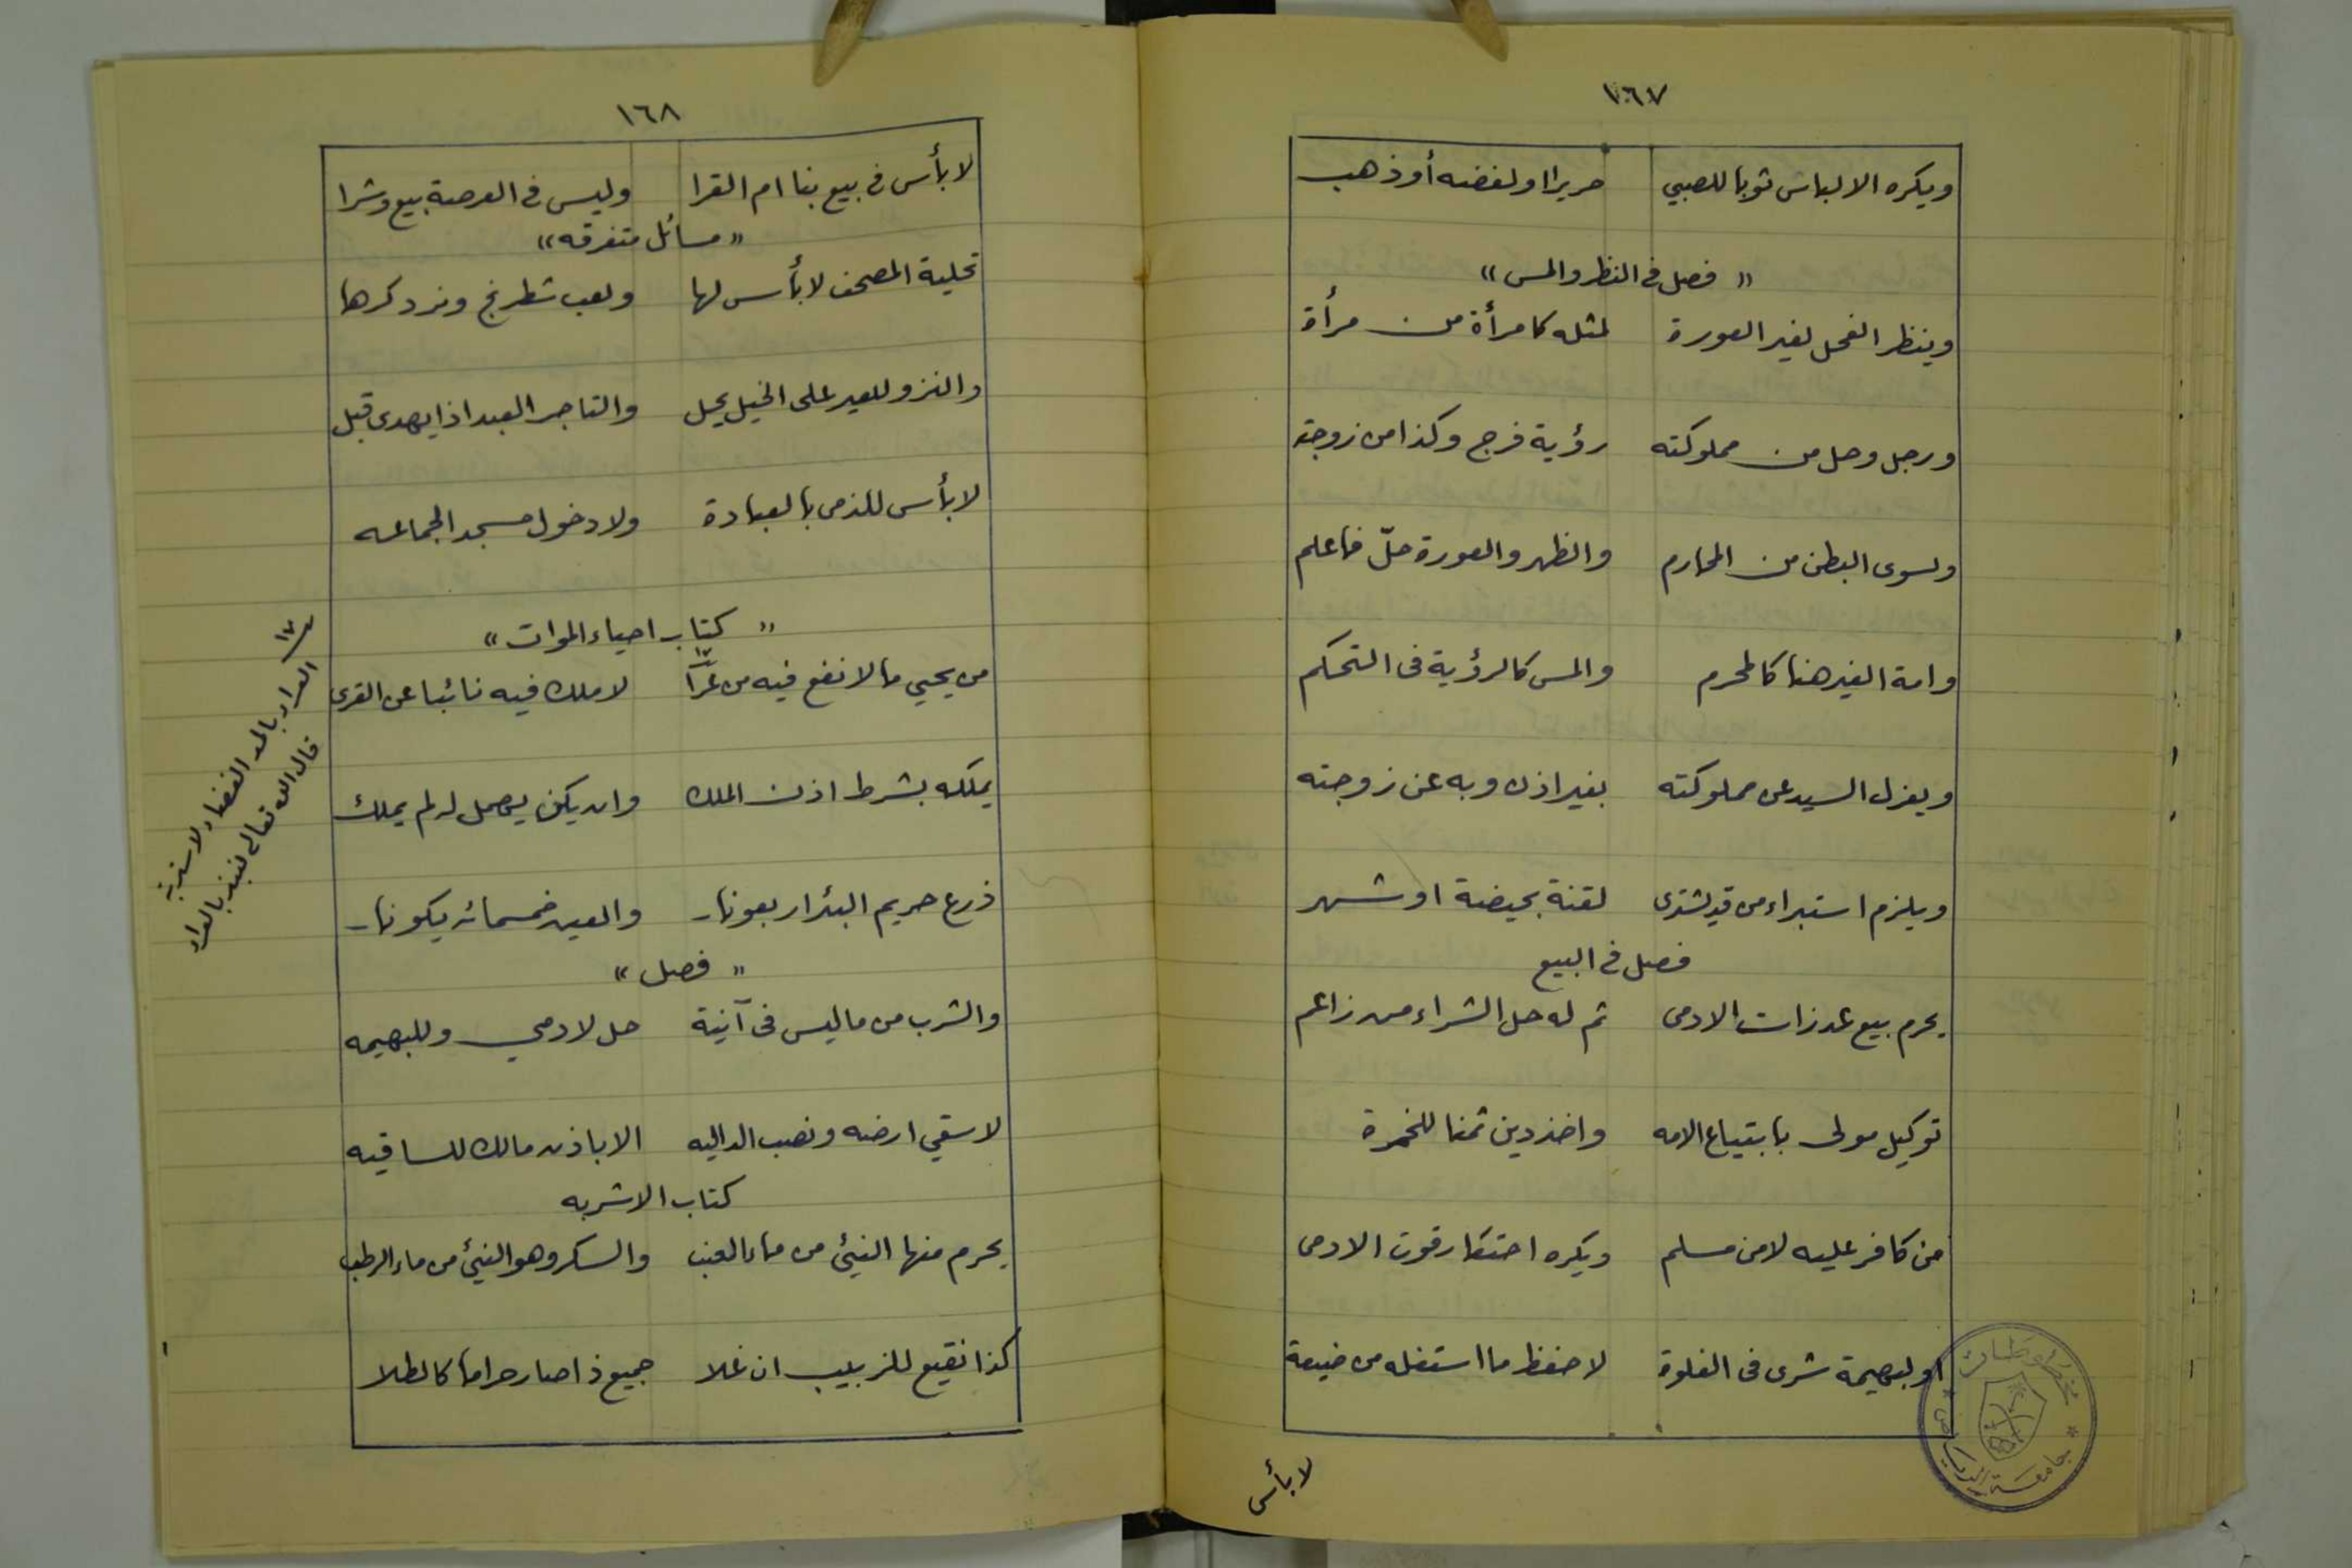 ١٦٧
ويكره الالباس ثوبا للصبي حريرا ولفضه أو ذهب
« فصل فى النظر والمس »
وينظر الفحل لغير العورة لمثله كامرأة من مرأة
ورجل وحل من مملوكته رؤية فرج وكذا من زوجته
ولسوى البطن من المحارم والظهر والعورة حلّ فاعلم
وامة الغير هنا كالمحرم والمس كالرؤية فى التحكم
ويعزل السيد عن مملوكته بغير اذن وبه عن زوجته
ويلزم استبراء من قد يشترى لقنة بحيضة او شهر
فصل فى البيع
يحرم بيع عذرات الادمى ثم له حل الشراء من زاعم
توكيل مولى بابتياع الامه واخذ دين ثمنا للخمرة
من كافر عليه لا من مسلم ويكره احتكار قوت الادمى
او لبهيمة شرى فى الفلوة لا حفظ ما استغله من ضيعة
لا بأس
مخطوطات
جامعة الرياض
١٦٨
لا بأس فى بيع بنا ام القرا وليس فى العرصة بيع وشرا
« مسائل متفرقه »
تحلية المصحف لا بأس لها ولعب شطرنج ونرد كرها
والنزو للعير على الخيل يحل والتاجر العبد اذا يهدى قبل
لا بأس للذمى بالعبادة ولا دخول مسجد الجماعه
« كتاب احياء الموات »
من يحيي ما لا نفع فيه من عرّا لا ملك فيه نائبا عن القرى
يملكه بشرط اذن الملك وان يكن يهمل له لم يملك
ذرع حريم البئر اربعونا والعين خمسمائه يكونا
« فصل »
والشرب من ما ليس فى آنية حل لادمي وللبهيمه
لا سقي ارضه ونصب الداليه الا باذن مالك للساقيه
كتاب الاشربه
يحرم منها النيئ من ماء العنب والسكر وهو النيئ من ماء الرطب
كذا نقيع للزبيب ان غلا جميع ذا صار حراما كالطلا
العراء بالمد الفضاء لا سترة
قال الله تعالى لنبذ بالعراء